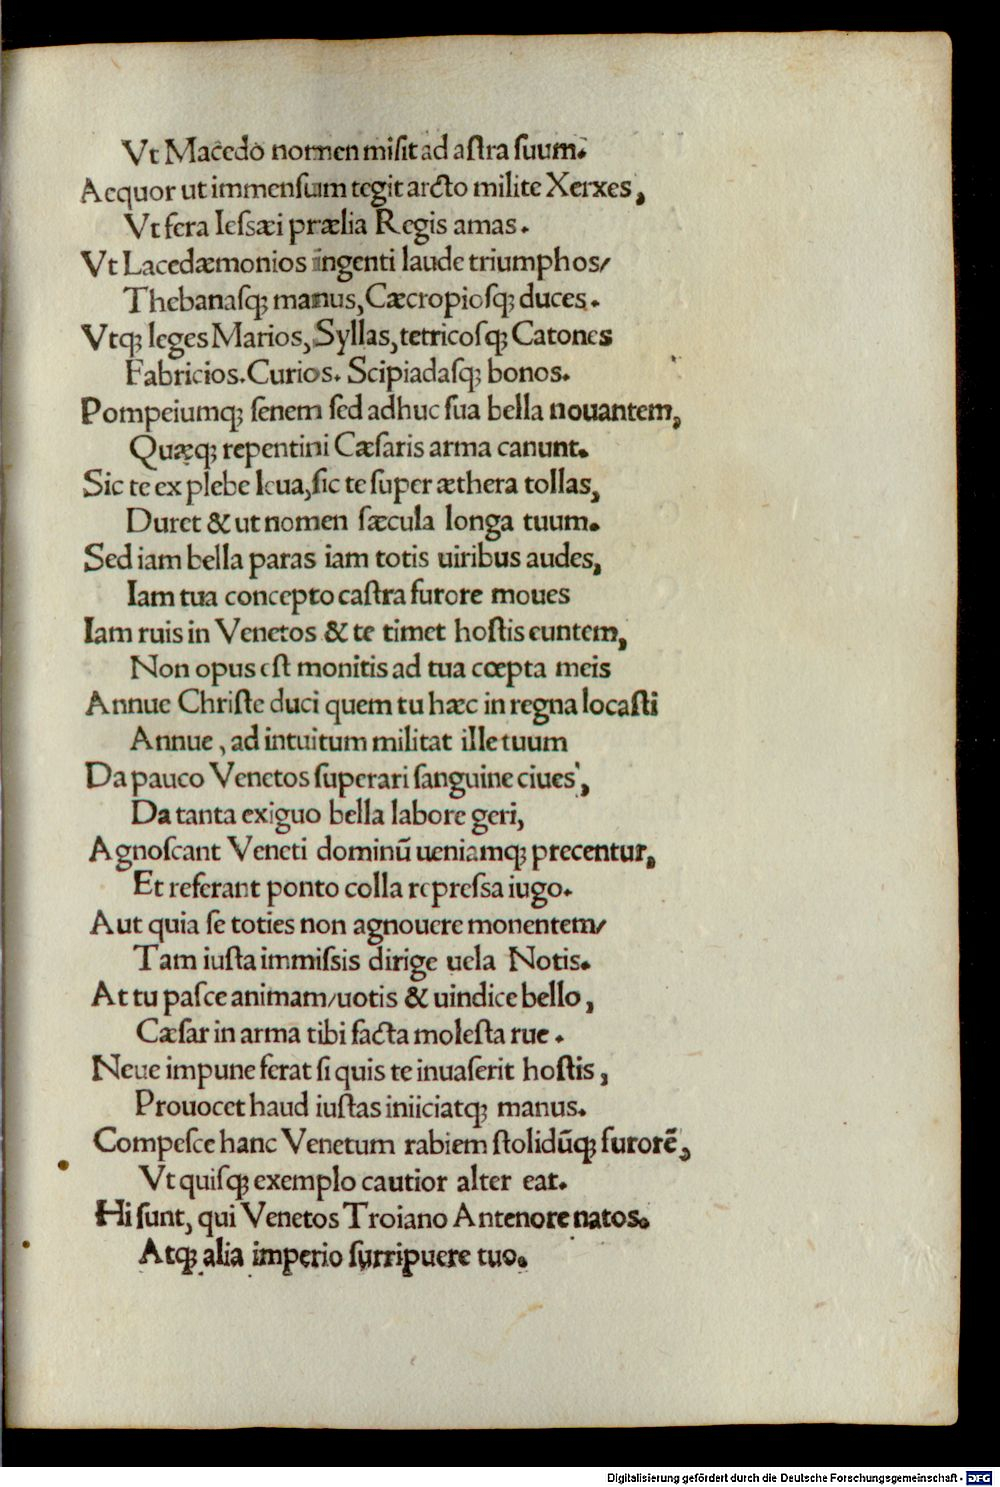 Vt Macedo nomen misit ad aſtra ſuum.
Aequor ut immenſum tegit arcto milite Xerxes,
Vt fera Ieſsæi prælia Regis amas.
Vt Lacedæmonios ingenti laude triumphos/
Thebanaſq; manus, Cæcropioſq; duces.
Vtq; leges Marios, Syllas, tetricoſq; Catones
Fabricios. Curios. Scipiadaſq; bonos.
Pompeiumq; ſenem ſed adhuc ſua bella nouantem,
Quæq; repentini Cæſaris arma canunt.
Sic te ex plebe leua, ſic te ſuper æthera tollas,
Duret & ut nomen ſæcula longa tuum.
Sed iam bella paras iam totis uiribus audes,
Iam tua concepto caſtra furore moues
Iam ruis in Venetos & te timet hoſtis euntem,
Non opus eſt monitis ad tua cœpta meis
Annue Chriſte duci quem tu hæc in regna locaſti
Annue, ad intuitum militat ille tuum
Da pauco Venetos ſuperari ſanguine ciues,
Da tanta exiguo bella labore geri,
Agnoſcant Veneti dominū ueniamq; precentur,
Et referant ponto colla repreſsa iugo.
Aut quia ſe toties non agnouere monentem/
Tam iuſta immiſsis dirige uela Notis.
At tu paſce animam/uotis & uindice bello,
Cæſar in arma tibi facta moleſta rue.
Neue impune ferat ſi quis te inuaſerit hoſtis,
Prouocet haud iuſtas iniiciatq; manus.
Compeſce hanc Venetum rabiem ſtolidūq; furorē,
Vt quiſq; exemplo cautior alter eat.
Hi ſunt, qui Venetos Troiano Antenore natos.
Atq; alia imperio ſurripuere tuo.
Digitalisierung gefördert durch die Deutsche Forschungsgemeinschaft - DFG